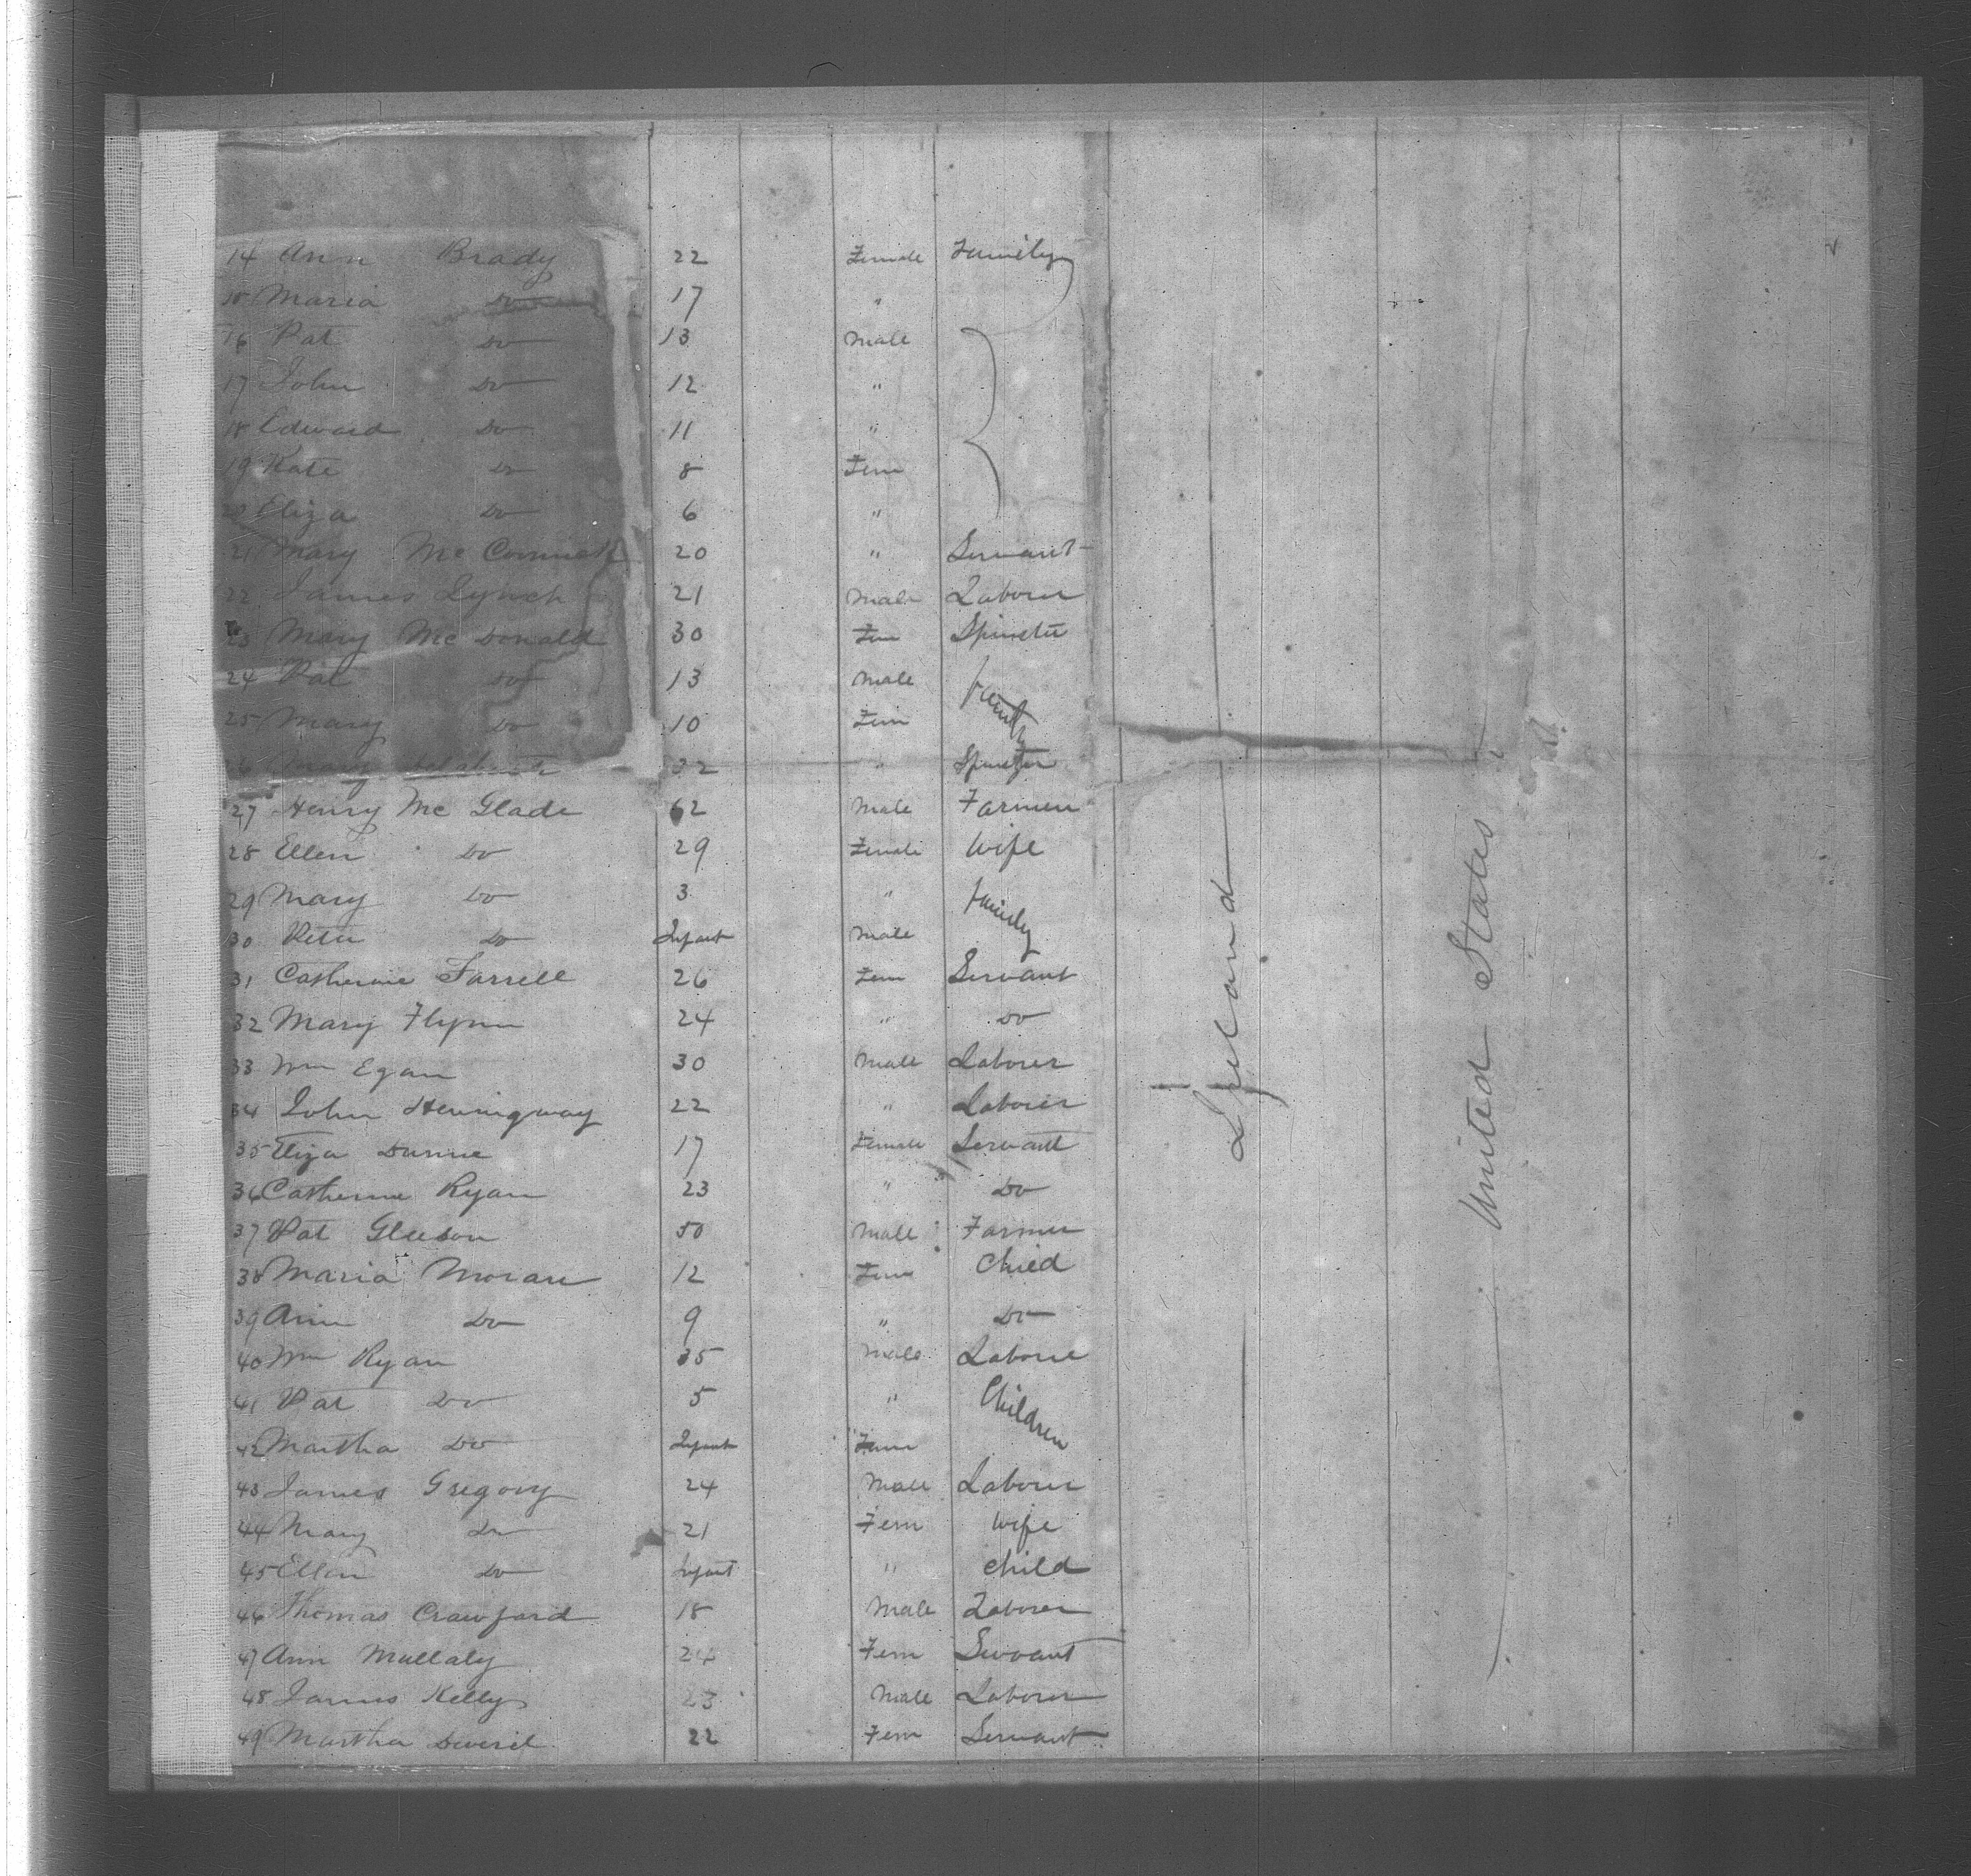 14 Ann Brady 22 Female Family
15 Maria Do 17 "
16 Pat Do 13 Male
17 John Do 12 "
18 Edward Do 11 "
19 Kate Do 8 Fem
20 Eliza Do 6 "
21 Mary Mc Connell 20 " Servant
22 James Lynch 21 Male Laborer
23 Mary Mc Donald 30 Fem Spinster
24 Pat Do 13 Male Family
25 Mary Do 10 Fem
26 Mary 32 " Spinster
27 Henry Mc Glade 62 Male Farmer
28 Ellen Do 29 Female Wife
29 Mary Do 3 " Family
30 Peter Do Infant Male
31 Catherine Farrell 26 Fem Servant
32 Mary Flynn 24 " Do
33 Wm Egan 30 Male Laborer
34 John Hemingway 22 " Laborer
35 Eliza Dunne 17 Female Servant
36 Catherine Ryan 23 " Do
37 Pat Gleeson 50 Male Farmer
38 Maria Moran 12 Fem Child
39 Ann Do 9 " Do
40 Wm Ryan 35 Male Laborer
41 Pat Do 5 " Children
42 Martha Do Infant Fem
43 James Gregory 24 Male Laborer
44 Mary Do 21 Fem Wife
45 Ellen Do Infant " Child
46 Thomas Crawford 18 Male Laborer
47 Ann Mullaly 24 Fem Servant
48 James Kelly 23 Male Laborer
49 Martha 22 Fem Servant
Ireland
United States